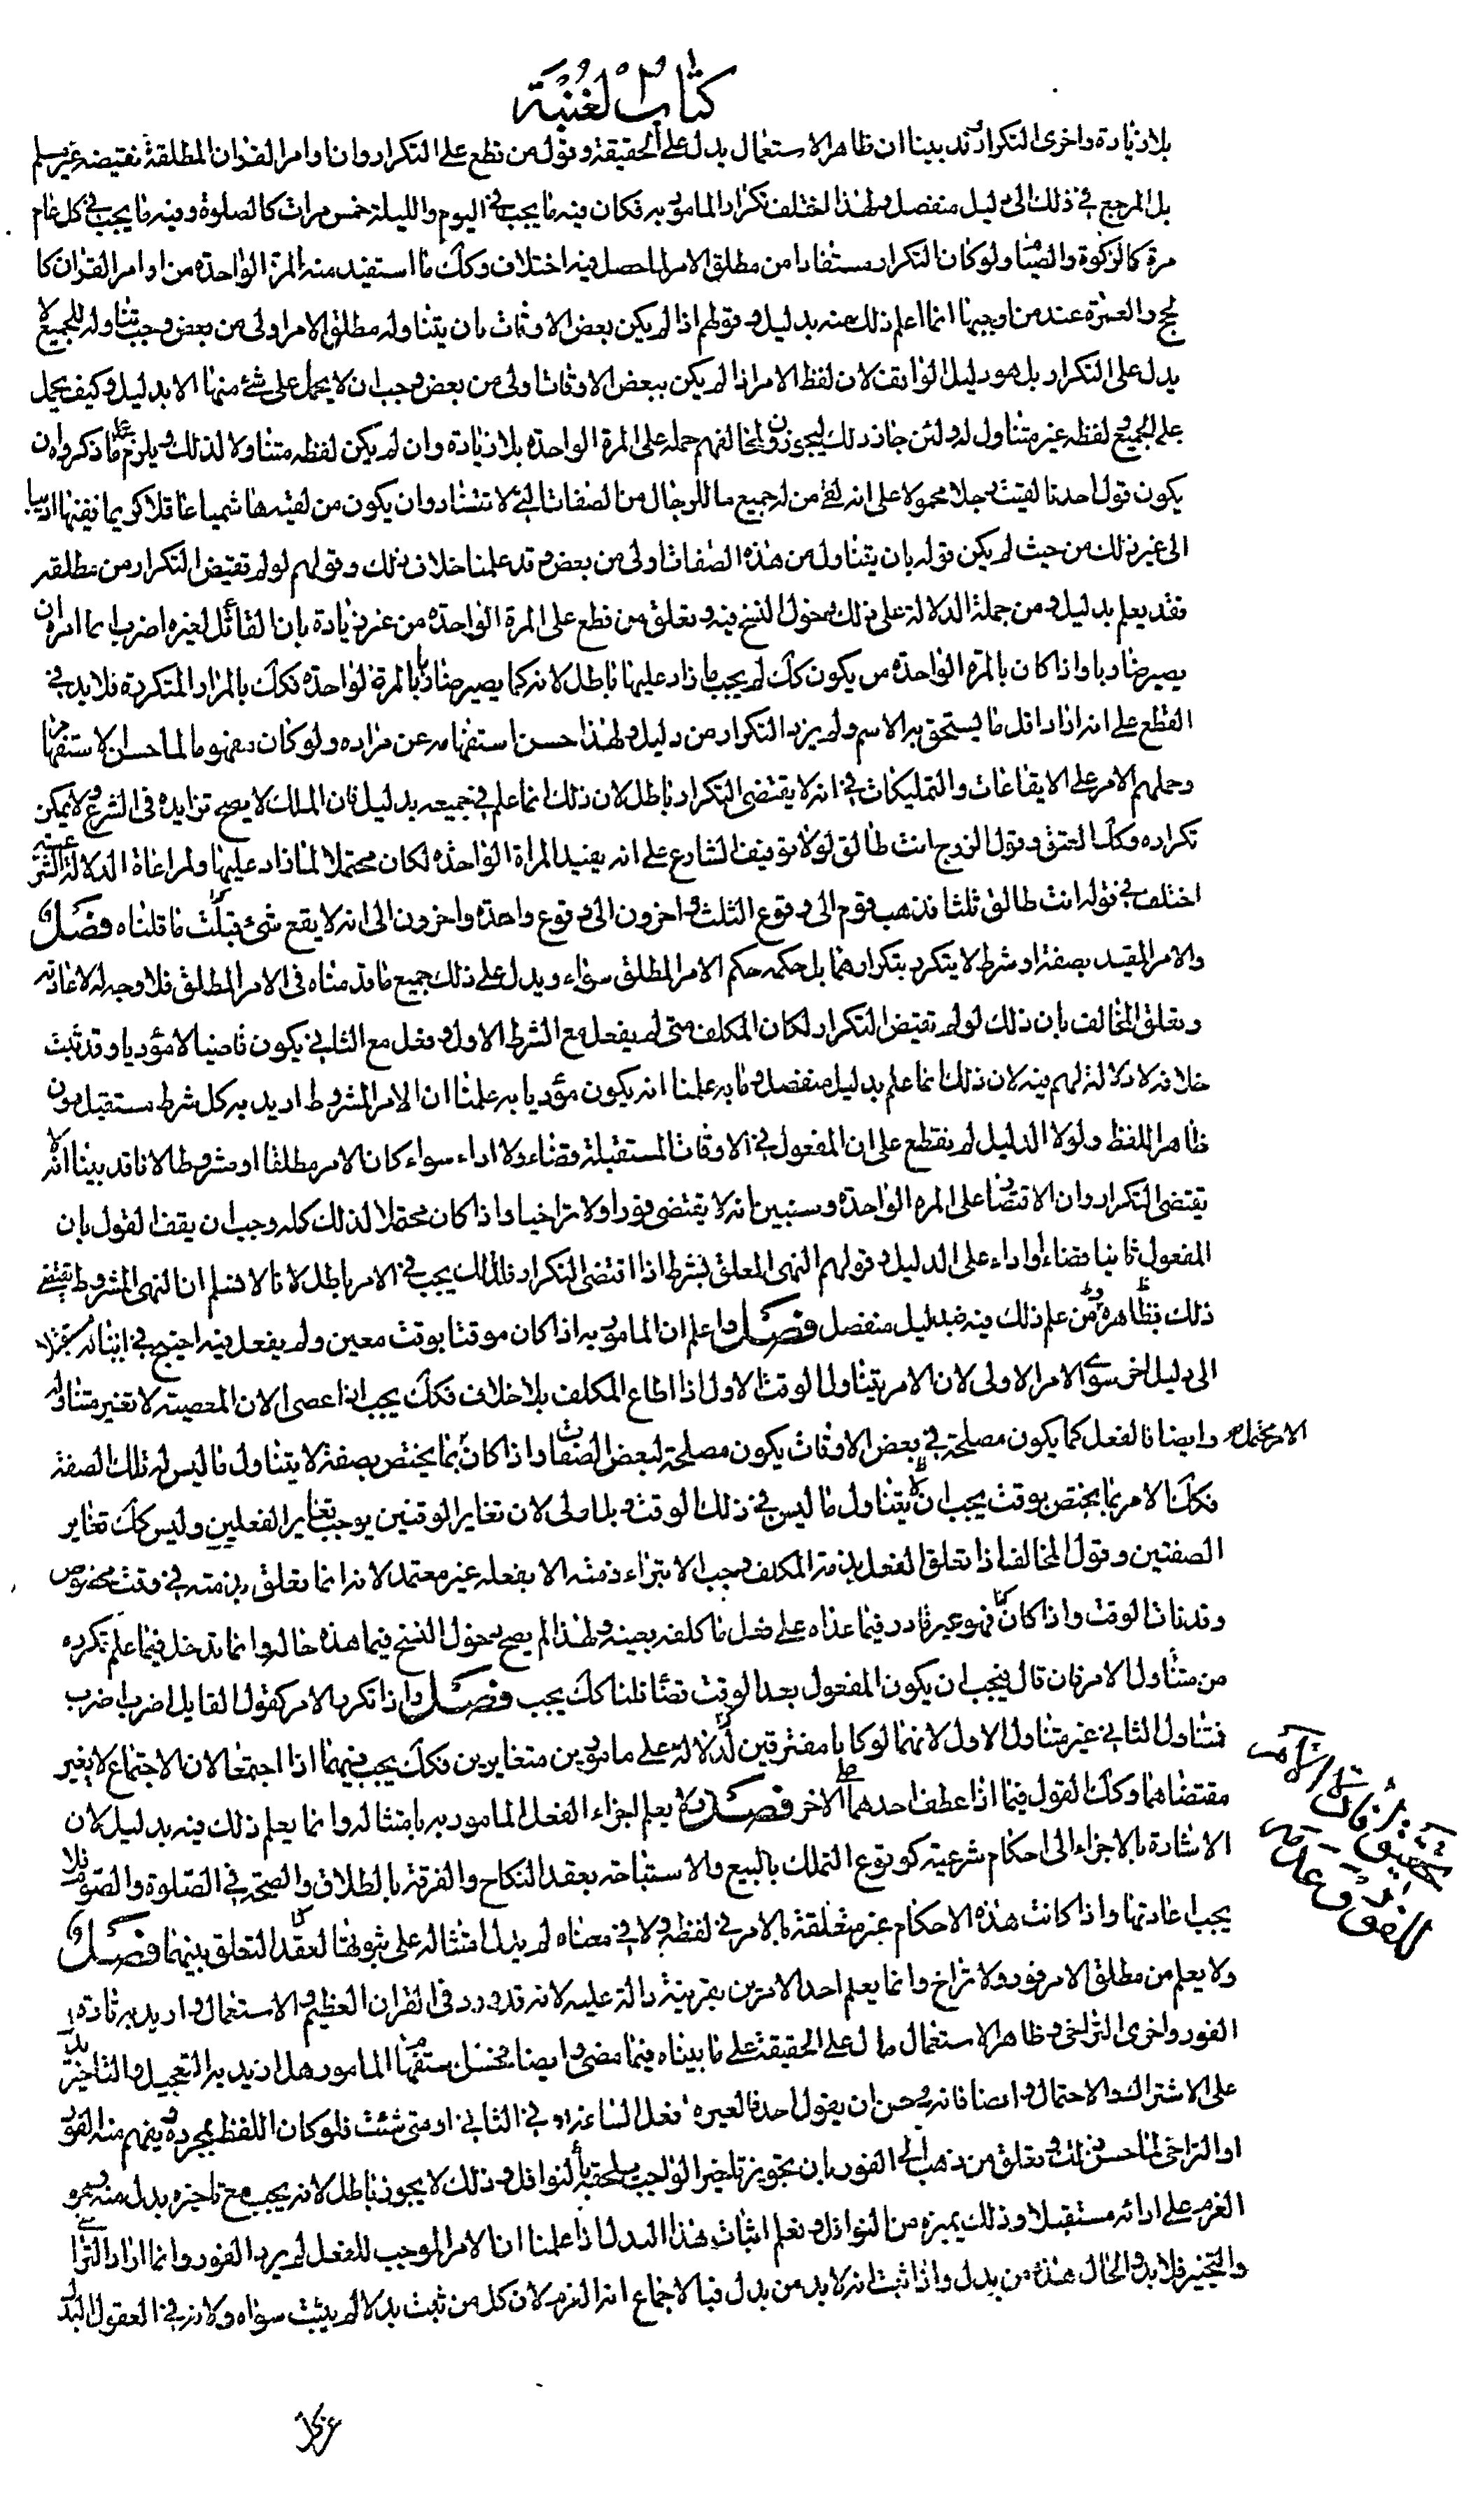 كتاب الغنية
بلا زيادة واخرى التكرار وقد بينا ان ظاهر الاستعمال يدل على الحقيقة وقول من قطع على التكرار وان اوامر القران المطلقة تقتضيه غير مسلم
بل المرجع في ذلك الى دليل منفصل ولهذا اختلف تكرار المامور به فكان فيه ما يجب في اليوم والليلة خمس مرات كالصلوة وفيه ما يجب في كل عام
مرة كالزكوة والصيام ولو كان التكرار مستفادا من مطلق الامر لما حصل فيه اختلاف وكك ما استفيد منه المرة الواحدة من اوامر القران كا
لحج والعمرة عند من اوجبها انما اعلم ذلك منه بدليل وقولهم اذا لم يكن بعض الاوقات بان يتناوله مطلق الامر اولى من بعض وجب تناوله للجميع لا
يدل على التكرار بل هو دليل الواقف لان لفظ الامر اذا لم يكن ببعض الاوقات اولى من بعض وجب ان لا يحمل على شئ منها الا بدليل وكيف يحمل
على الجميع لفظه غير متناول له ولئن جاز ذلك ليجوزن لمخالفهم حمله على المرة الواحدة بلا زيادة وان لم يكن لفظه متناولا لذلك ويلزم على ما ذكروه ان
يكون قول احدنا لقيت رجلا محمولا على انه لقى من له جميع ما للرجال من الصفات التي لا تتضاد وان يكون من لقيه هاشميا عاقلا كريما فقيها اديبا
الى غير ذلك من حيث لم يكن قوله بان يتناول من هذه الصفات اولى من بعض وقد علمنا خلاف ذلك وقولهم لو لم تقتض التكرار من مطلقه
فقد يعلم بدليل ومن جملة الدلالة على ذلك دخول النسخ فيه وتعلق من قطع على المرة الواحدة من غير زيادة بان القائل لغيره اضرب انما امره ان
يصير ضاربا واذا كان بالمرة الواحدة من يكون كك لم يجب ما زاد عليها باطل لانه كما يصير ضاربا بالمرة الواحدة فكك بالمرار المتكررة فلا بد في
القطع على انه اراد اقل ما يستحق به الاسم ولم يرد التكرار من دليل ولهذا حسن استفهامه عن مراده ولو كان مفهوما لما حسن الاستفهام
وحملهم الامر على الايقاعات والتمليكات في انه لا يقتضى التكرار باطل لان ذلك انما علم في جميعه بدليل فان الملك لا يصح تزايده فى الشرع ولا يمكن
تكراره وكك العتق وقول الزوج انت طالق لولا توقيف الشارع على انه يفيد المراة الواحدة لكان محتملا لما زاد عليها ولمراعاة الدلالة الشرعية
اختلف في قوله انت طالق ثلثا فذهب قوم الى وقوع الثلث واخرون الى وقوع واحدة واخرون الى انه لا يقع شئ فبان كك ما قلناه فصل
والامر المقيد بصفة او شرط لا يتكرر بتكرارهما بل حكمه حكم الامر المطلق سواء ويدل على ذلك جميع ما قدمناه فى الامر المطلق فلا وجه لاعادته
وتعلق المخالف بان ذلك لو لم تقتض التكرار لكان المكلف متى لم يفعل مع الشرط الاول وفعل مع الثاني يكون قاضيا لا مؤديا وقد ثبت
خلافه لا دلالة لهم فيه لان ذلك انما علم بدليل منفصل وما به علمنا انه يكون مؤديا به علمنا ان الامر المشروط اريد به كل شرط مستقبل دون
ظاهر اللفظ ولولا الدليل لم نقطع على ان المفعول في الاوقات المستقبلة قضاء ولا اداء سواء كان الامر مطلقا او مشروطا لانا قد بينا انه لا
يقتضى التكرار وان الاقتصار على المرة الواحدة وسنبين انه لا يقتضى فورا ولا تراخيا واذا كان محتملا لذلك كله وجب ان يقف القول بان
المفعول ثانيا قضاء او اداء على الدليل وقولهم النهى المعلق بشرط اذا اقتضى التكرار فكذلك يجب في الامر باطل لانا لا نسلم ان النهى المشروط يقتضي
ذلك بظاهره ومن علم ذلك فيه فبدليل منفصل فصل واعلم ان المامور به اذا كان موقتا بوقت معين ولم يفعل فيه احتيج في اتيانه مستقبلا
الى دليل اخر سوى الامر الاولى لان الامر يتناول الوقت الاول اذا اطاع المكلف بلا خلاف فكك يجب اذا عصى لان المعصية لا تغير متناول
الامر محتمل وايضا فالفعل كما يكون مصلحة في بعض الاوقات يكون مصلحة لبعض الصفات واذا كان بما يختص بصفة لا يتناول ما ليس له تلك الصفة
فكك الامر بما يختص بوقت يجب ان لا يتناول ما ليس في ذلك الوقت وبل اولى لان تغاير الوقتين يوجب تغاير الفعلين وليس كك تغاير
الصفتين وقول المخالف اذا تعلق الفعل بذمة المكلف وجب الا تبراء ذمته الا بفعله غير معتمد لانه انما تعلق بذمته في وقت مخصوص
وقد فات الوقت واذا كان كك فهو غير قادر فيما عداه على فعل ما كلفه بعينه ولهذا لم يصح دخول النسخ فيما هذه حاله وانما تدخل فيما علم تكرره
من متناول الامر فان قال فيجب ان يكون المفعول بعد الوقت قضاء قلنا كك يجب فصل واذا تكرر الامر كقول القايل اضرب اضرب
فتناول الثاني غير متناول الاول لانهما لو كانا مفترقين لدلا على مامورين متغايرين فكك يجب فيهما اذا اجتمعا لان الاجتماع لا يغير
مقتضاهما وكك القول فيما اذا عطف احدهما على الاخر فصل ولا يعلم اجزاء الفعل المامور به بامتثاله وانما يعلم ذلك فيه بدليل لان
الاشارة بالاجزاء الى احكام شرعية كوقوع التملك بالبيع والاستباحة بعقد النكاح والفرقة بالطلاق والصحة في الصلوة والصوم فلا
يجب اعادتها واذا كانت هذه الاحكام غير متعلقة بالامر في لفظه ولا في معناه لم يدل امتثاله على ثبوتها لفقد التعلق بينهما فصل
ولا يعلم من مطلق الامر فور ولا تراخ وانما يعلم احد الامرين بقرينة دالة عليه لانه قد ورد فى القران العظيم والاستعمال واريد به تارة
الفور واخرى التراخى وظاهر الاستعمال دال على الحقيقة على ما بيناه فيما مضى وايضا فحسن استفهام المامور هل اريد به التعجيل والتاخير يدل
على الاشتراك والاحتمال وايضا فانه يحسن ان يقول احدنا لغيره افعل الساعة او في الثاني او متى شئت فلو كان اللفظ بمجرده يفهم منه الفور
او التراخى لما حسن ذلك وتعلق من ذهب الى الفور بان تجويز تاخير الواجب يلحقه بالنوافل وذلك لا يجوز باطل لانه يجب مع تاخيره بدل منه وهو
العزم على ادائه مستقبلا وذلك يميزه من النوافل ونعلم اثبات هذا البدل اذا علمنا ان الامر الموجب للفعل لم يرد الفور وانما اراد التراخى
والتخيير فلا بد والحال هذه من بدل واذا ثبت انه لا بد من بدل فبالاجماع انه العزم لان كل من ثبت بدلا لم يثبت سواه ولانه في العقول البدل